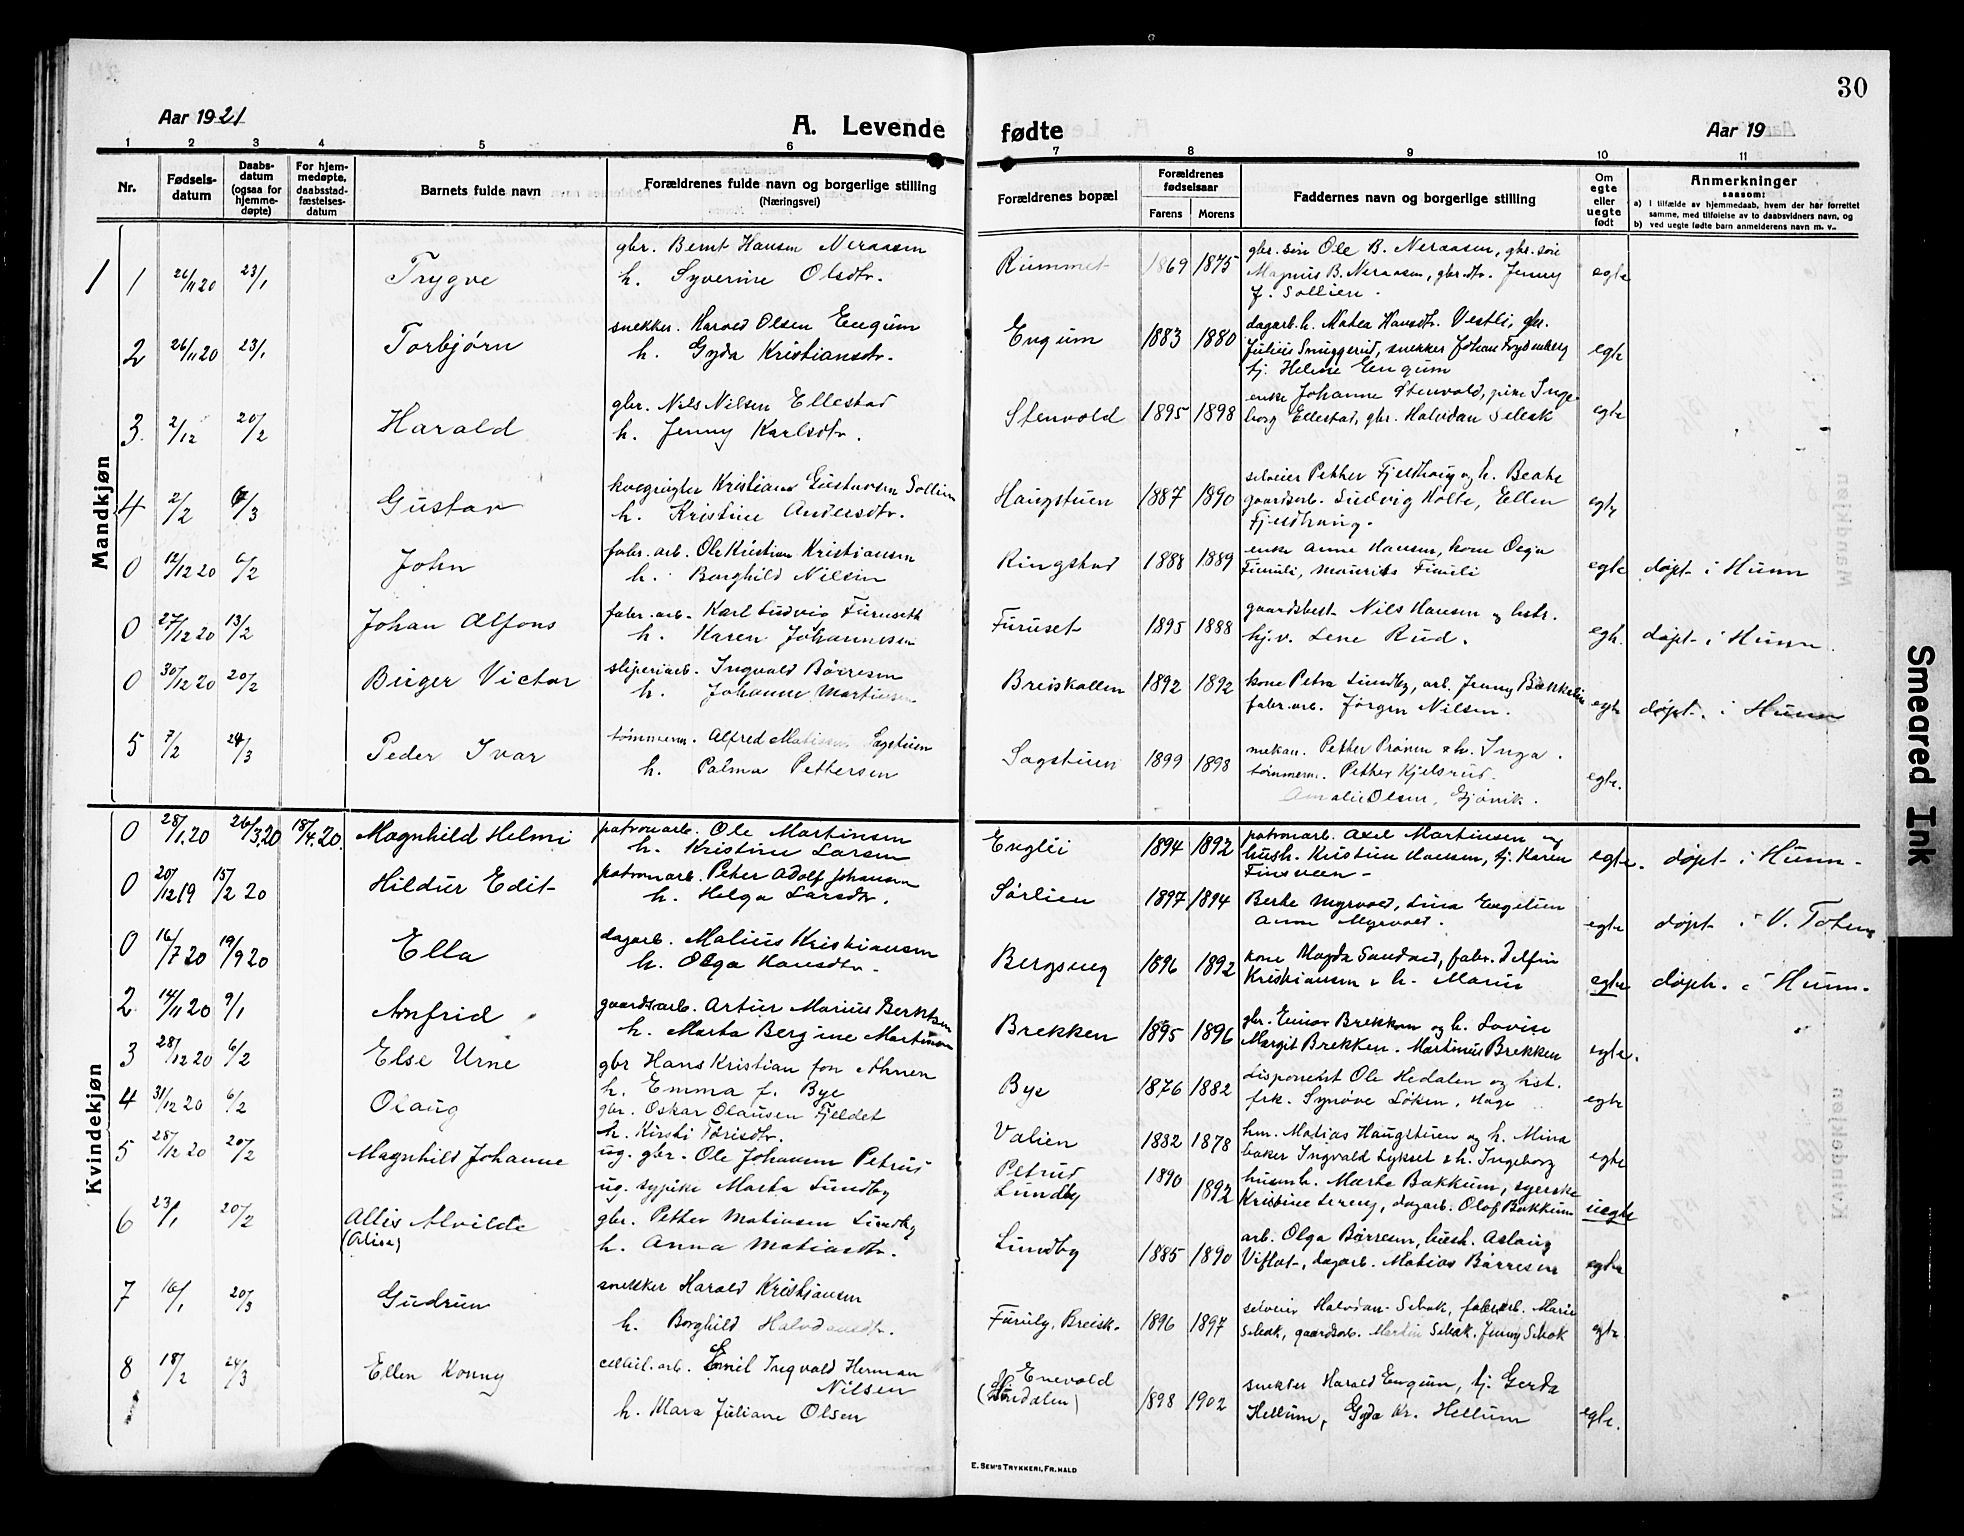 30
Aar 1921
A. Levende
fødte
Aar 19
1 2 3 4 5 6 7 8 9 10 11
Nr.
Fødsels-
datum
Daabs-
datum
(ogsaa for
hjemme-
døpte)
For hjem-
medøpte,
daabsstad-
fæstelses-
datum
Barnets fulde navn
Forældrenes fulde navn og borgerlige stilling
(Næringsvei)
Forældrenes bopæl
Forældrenes
fødselsaar
Farens Morens
Faddernes navn og borgerlige stilling
Om
egte
eller
uegte
født
Anmerkninger
saasom:
a) i tilfælde av hjemmedaab, hvem der har forrettet
samme, med tilføielse av to daabsvidners navn, og
b) ved uegte fødte barn anmelderens navn m. v..
Mandkjøn
1 26/11 20 23/1 Trygve
gbr. Bernt Hansen Neraasen
h. Syverine Olsdtr.
Rummet 1869 1875
gbr. søn Ole B. Neraasen, gbr. søn
Magnus B. Neraasen, gbr. dtr. Jenny
f. Sollien.
egte
2 26/11 20 23/1 Torbjørn
snekker. Harald Olsen Engum
h. Gyda Kristiansdtr.
Engum 1883 1880
dagarb. h. Matea Hansdtr. Vestli, gbr.
Julius Smuggerud, snekker Johan Frydenberg
tj. Helene Engum
egte
3. 2/12 20/2 Harald
gbr. Nils Nilsen Ellestad
h. Jenny Karlsdtr.
Stenvold 1895 1898
enke Johanne Stenvold, pike Inge-
borg Ellestad, gbr. Halvdan Sebak
egte
4 2/2 6/3 Gustav
Kristians Gustavsen Sollien
h. Kristine Andersdtr.
Haugstuen 1887 1890
selveier Petther Fjeldhaug og h. Beate
gaardsarb. Ludvig Holte, Ellen
Fjeldhaug.
egte
0 12/12 20 6/2 John
fabr. arb. Ole Kristian Kristiansen
h. Borghild Nilsen
Ringstad 1888 1889
enke Anne Hansen, kone Olga
Furuli, Maurits Furuli
egte døpt i Hunn
0 27/12 20 13/2 Johan Alfons
fabr. arb. Karl Ludvig Furuseth
h. Karen Johannesen
Furuset 1895 1888
gaardsbest. Nils Hansen og hstr.
hj.v. Lene Rud.
egte. døpt i Hunn.
0 30/12 20 20/2 Birger Victor
sliperiarb. Ingvald Børresen
h. Johanne Martinsen
Breiskallen 1892 1892
kone Petra Lundby, arb. Jenny
fabr. arb. Jörgen Nilsen.
egte døpt. i Hunn
5 7/2 24/3 Peder Ivar
tømmerm. Alfred Sagstuen
h. Palma Pettersen
Sagstuen 1899 1898
mekan. Petther Prønen & h. Inga.
tømmerm. Petther Kjelsrud.
Amalie Olsen, Gjøvik.
egte.
Kvindekjøn
0 28/1 20 26/3 20 18/4 20. Magnhild Helmi
patronarb. Ole Martinsen
h. Kristine Larsen
Englei 1894 1892
patronarb. Axel Martinsen og
hush. Kristine Hansen, tj. Karen
egte. døpt i Hunn.
0 20/12 19 15/2 20 Hildur Edit
patronarb. Peter Adolf Johansen
h. Helga Larsdtr.
Sørlien 1897 1894
Berte Myrvold, Lina Engelien
Anna Myrvold.
egte døpt i V. Toten
0 16/7 20 19/9 20 Ella
dagarb. Matius Kristiansen
h. Olga Hansdtr.
Bergsveg 1896 1892
kone Magda Sandved, fabr. Delfin
Kristiansen & h. Marie
egte døpt. i Hunn.
2 14/11 20 9/1 Arnfrid
gaardsarb. Artur Marius Berkken
h. Marta Bergine Martinsen
Brekken 1895 1896
gbr. Einar Brekken og h. Lovise
Margit Brekken. Martinus Brekken
egte.
3 28/12 20 6/2 Else Urne
gbr Hans Kristian fon Ahnen
h. Emma f. Bye
Bye 1876 1882
disponent Ole Hedalen og hst.
frk. Synøve Løken, Hage
egte
4 31/12 20 6/2 Olaug
gbr. Oskar Olausen Fjeldet
h. Kirsti Torisdtr.
Valien 1882 1878
hm. Matias Haugstuen og h. Mina
baker Ingvald Lykset & h. Ingeborg
egte
5 28/12 20 20/2 Magnhild Johanne
ug. gbr. Ole Johansen Petrud
ug. sypike Marta Lundby
Petrud
Lundby 1890 1892
husmh. Marte Bakkum, syerske
Kristine Lereng, dagarb. Olaf Bakkum
uegte
6 23/1 20/2 Allis Alvilde
(Alise)
gbr. Petter Mathisen Lundby
h. Anna Matiasdtr.
Lundby 1885 1890
arb. Olga Børresen, hush. Aslaug
Viflat, dagarb. Matias Børresen
egte
7 16/1 20/3 Gudrun
snekker Harald Kristiansen
h. Borghild Halvdansdtr.
Furuly, Breisk. 1896 1897
selveier Halvdan Sebak, fabrikarb. Marie
Sebak, gaardsarb. Martin Sebak, Jenny Sebak
egte.
8 18/2 24/3 Ellen Konny
cellul. arb. Emil Ingvald Herman
Nilsen
h. Klara Juliane Olsen
Enevold
1898 1902
snekker Harald Engum, tj. Gerda
Hellum, Gyda Kr. Hellum
egte.
E. SEM'S TRYKKERI, FR.HALD
Smeared Ink